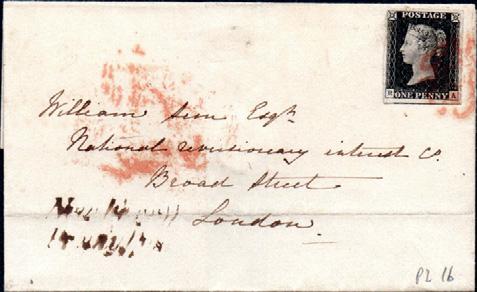 POSTAGE
ONE PENNY
William Sim Esqr
National reversionary interest Co.
Broad Street
London.
PL 1b